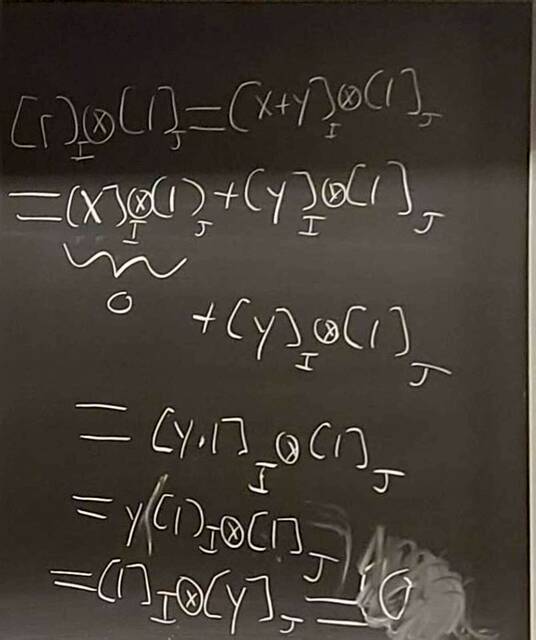 [r]_I⊗[1]_J=[x+y]_I⊗[1]_J
=[x]_I⊗[1]_J+[y]_I⊗[1]_J
0
+[y]_I⊗[1]_J
=[y·1]_I⊗[1]_J
=y([1]_I⊗[1]_J)
=[1]_I⊗[y]_J=0